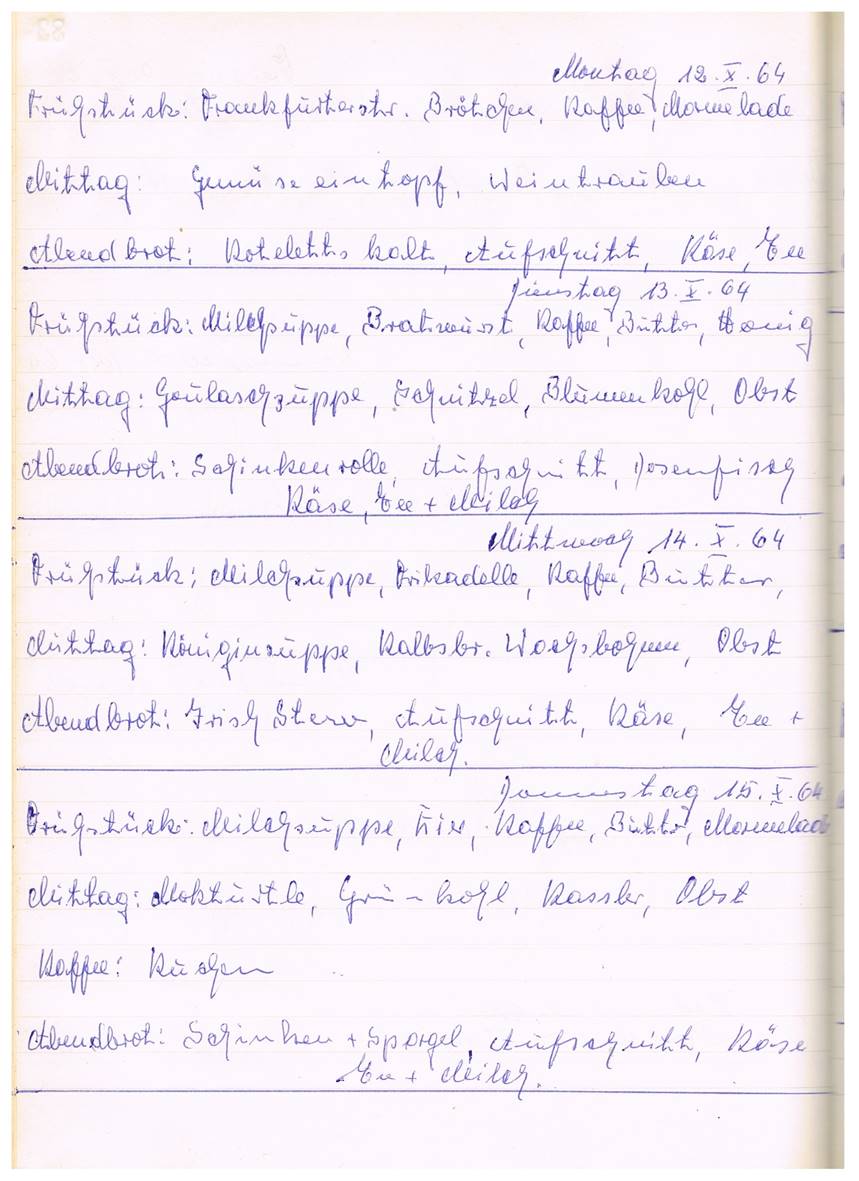 Montag 12.X.64
Frühstück: Frankfurterstr. Brötchen, Kaffee, Marmelade
Mittag: Gemüseeintopf, Weintrauben
Abendbrot: Koteletts kalt, Aufschnitt, Käse, Tee
Dienstag 13.X.64
Frühstück: Milchsuppe, Bratwurst, Kaffee, Butter, Honig
Mittag: Goulaschsuppe, Schnitzel, Blumenkohl, Obst
Abendbrot: Schinkenrolle, Aufschnitt, Dosenfisch
Käse, Tee + Milch
Mittwoch 14.X.64
Frühstück: Milchsuppe, Frikadelle, Kaffee, Butter,
Mittag: Königinsuppe, Kalbsbr. Wachsbohnen, Obst
Abendbrot: Irish Stew, Aufschnitt, Käse, Tee +
Milch.
Donnerstag 15.X.64
Frühstück: Milchsuppe, Eier, Kaffee, Butter, Marmelade
Mittag: Mokturtle, Grünkohl, Kassler, Obst
Kaffee: Kuchen
Abendbrot: Schinken + Spargel, Aufschnitt, Käse
Tee + Milch.